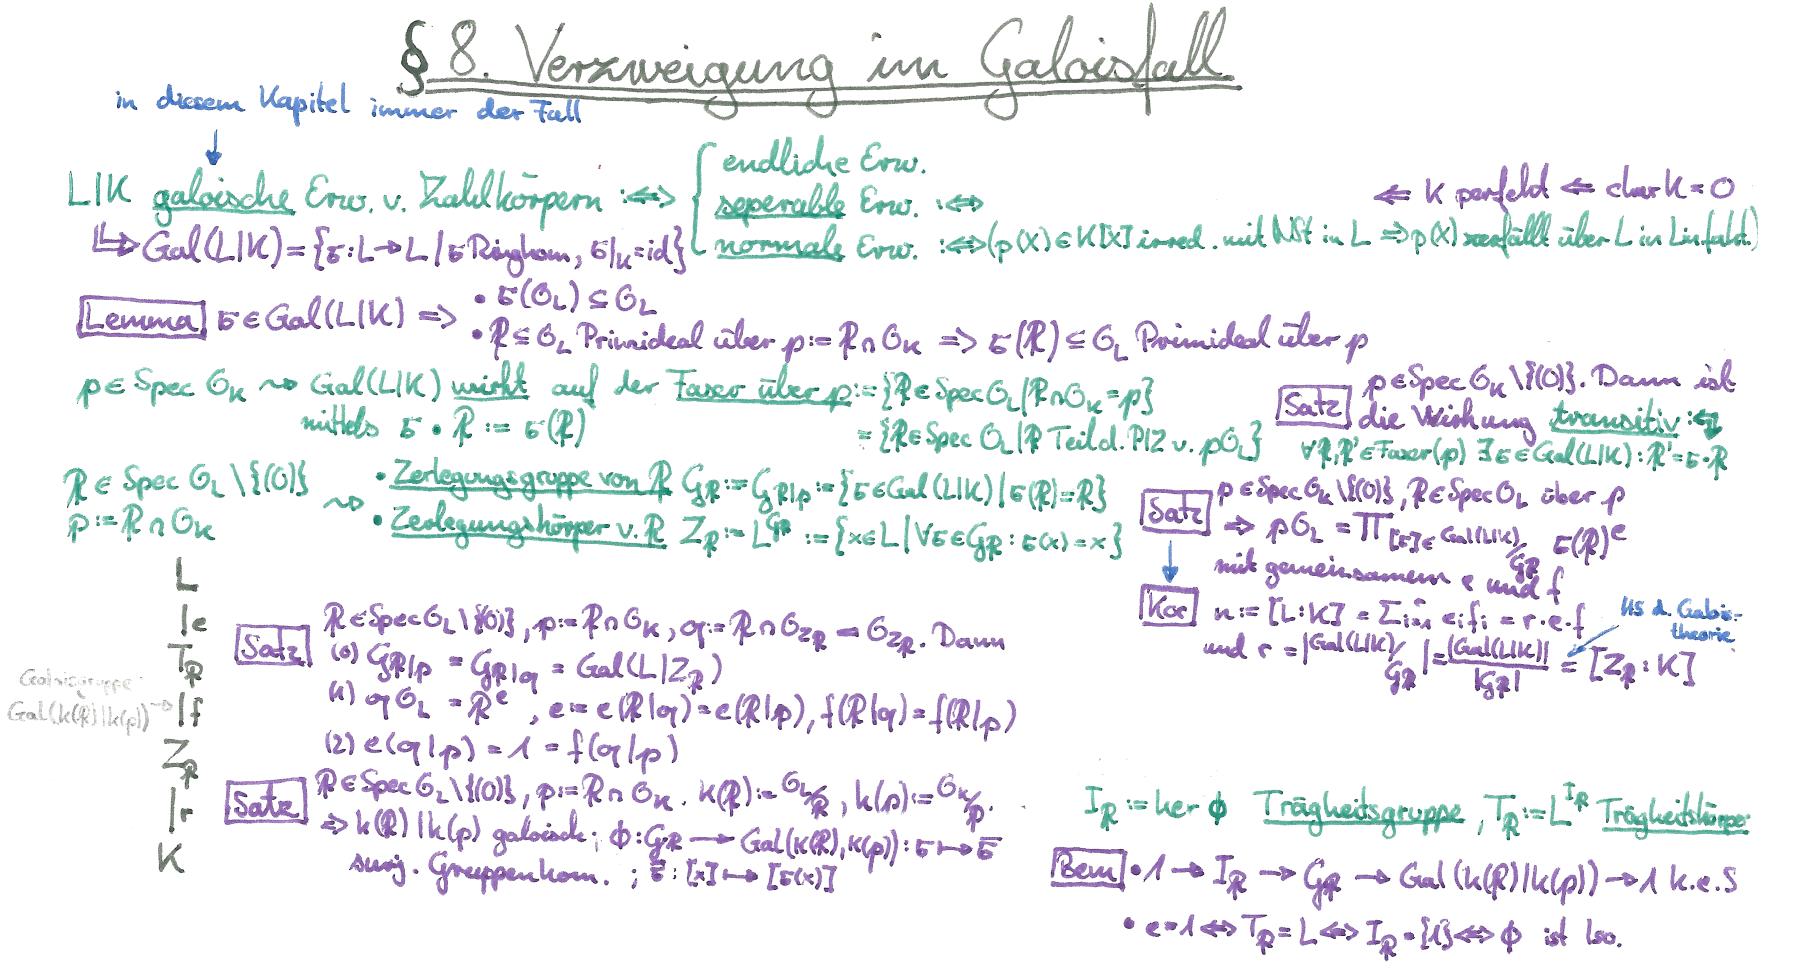 § 8. Verzweigung im Galoisfall
in diesem Kapitel immer der Fall
↓
L|K galoische Erw. v. Zahlkörpern :⇔ { endliche Erw.
seperable Erw. :⇔ ⇐ K perfekt ⇐ char K = 0
normale Erw. :⇔ (p(X) ∈ K[X] irred. mit NSt in L ⇒ p(X) zerfällt über L in Linfakt.)
↳ Gal(L|K) = {σ: L → L | σ Ringhom, σ|_K = id}
Lemma σ ∈ Gal(L|K) ⇒ • σ(O_L) ⊆ O_L
• 𝔓 ⊆ O_L Primideal über p := 𝔓 ∩ O_K ⇒ σ(𝔓) ⊆ O_L Primideal über p
p ∈ Spec O_K ⇝ Gal(L|K) wirkt auf der Faser über p := {𝔓 ∈ Spec O_L | 𝔓 ∩ O_K = p}
mittels σ • 𝔓 := σ(𝔓) = {𝔓 ∈ Spec O_L | 𝔓 Teil d. PIZ v. pO_L}
Satz p ∈ Spec O_K \ {(0)}. Dann ist
die Wirkung transitiv :⇔
∀ 𝔓, 𝔓' ∈ Faser(p) ∃ σ ∈ Gal(L|K) : 𝔓' = σ • 𝔓
𝔓 ∈ Spec O_L \ {(0)}
p := 𝔓 ∩ O_K
⇝ • Zerlegungsgruppe von 𝔓 G_𝔓 := G_𝔓|p := {σ ∈ Gal(L|K) | σ(𝔓) = 𝔓}
• Zerlegungskörper v. 𝔓 Z_𝔓 := L^{G_𝔓} := {x ∈ L | ∀ σ ∈ G_𝔓 : σ(x) = x}
Satz p ∈ Spec O_K \ {(0)}, 𝔓 ∈ Spec O_L über p
⇒ pO_L = ∏_{[σ] ∈ Gal(L|K)/G_𝔓} σ(𝔓)^e
mit gemeinsamem e und f
↓
Kor n := [L:K] = Σ_{i=1}^n e_i f_i = r·e·f
und r = |Gal(L|K)/G_𝔓| = |Gal(L|K)|/|G_𝔓| = [Z_𝔓 : K]
HS d. Galois-
theorie
L
| e
T_𝔓
| f
Z_𝔓
| r
K
Galoisgruppe
Gal(k(𝔓)|k(p)) →
Satz 𝔓 ∈ Spec O_L \ {(0)}, p := 𝔓 ∩ O_K, q := 𝔓 ∩ O_{Z_𝔓} = O_{Z_𝔓}. Dann
(0) G_𝔓|p = G_𝔓|q = Gal(L|Z_𝔓)
(1) q O_L = 𝔓^e, e := e(𝔓|q) = e(𝔓|p), f(𝔓|q) = f(𝔓|p)
(2) e(q|p) = 1 = f(q|p)
Satz 𝔓 ∈ Spec O_L \ {(0)}, p := 𝔓 ∩ O_K. k(𝔓) := O_L/𝔓, k(p) := O_K/p.
⇒ k(𝔓)|k(p) galoisch; ϕ: G_𝔓 → Gal(k(𝔓), k(p)) : σ ↦ σ̄
surj. Gruppenhom. ; σ̄ : [x] ↦ [σ(x)]
I_𝔓 := ker ϕ Trägheitsgruppe, T_𝔓 := L^{I_𝔓} Trägheitskörper
Bem • 1 → I_𝔓 → G_𝔓 → Gal(k(𝔓)|k(p)) → 1 k.e.S
• e=1 ⇔ T_𝔓 = L ⇔ I_𝔓 = {1} ⇔ ϕ ist Iso.